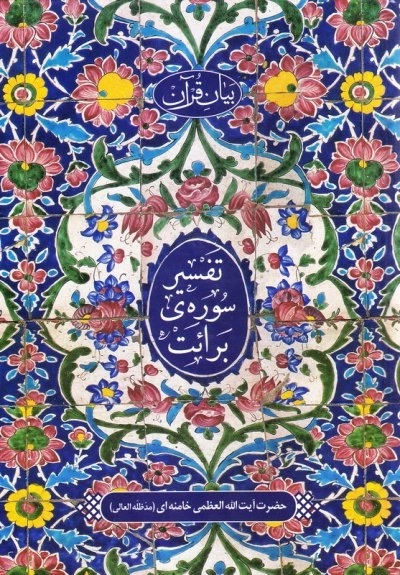 بیان قرآن
تفسیر
سوره‌ی
برائت
حضرت آیت الله العظمی خامنه ای (مدظله العالی)